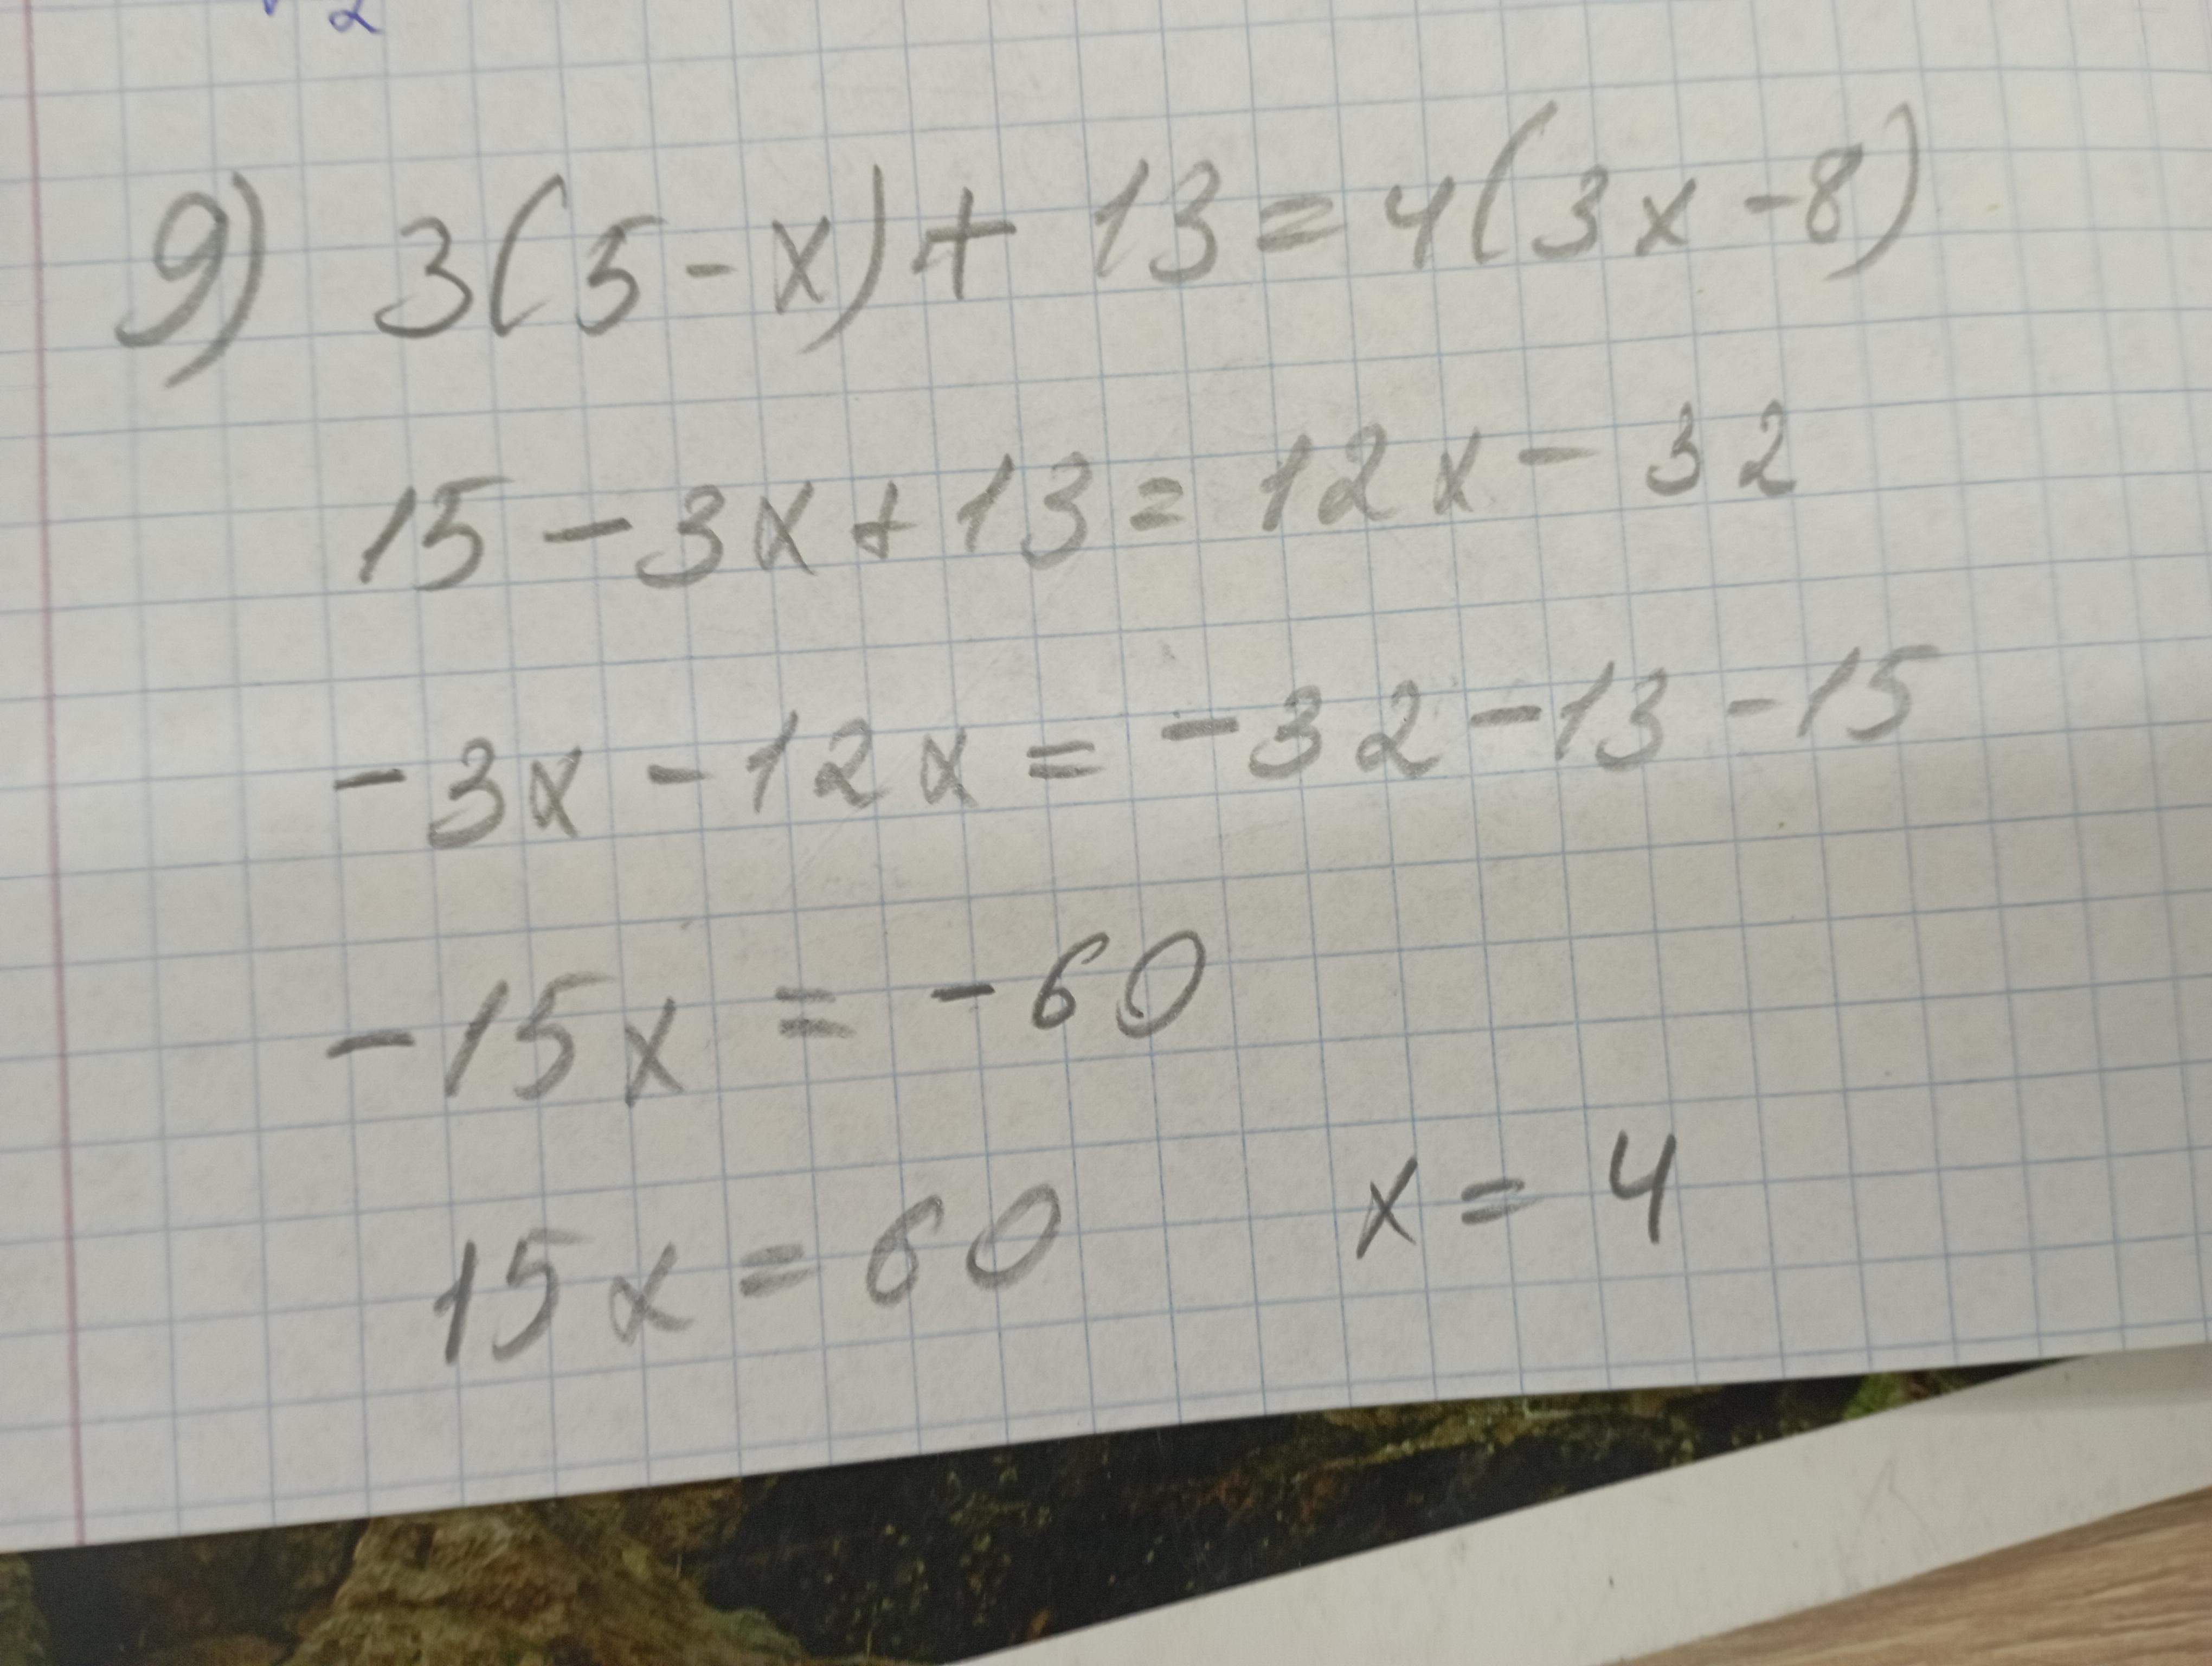 9) 3(5-x)+13=4(3x-8)
15-3x+13=12x-32
-3x-12x=-32-13-15
-15x=-60
15x=60 x=4